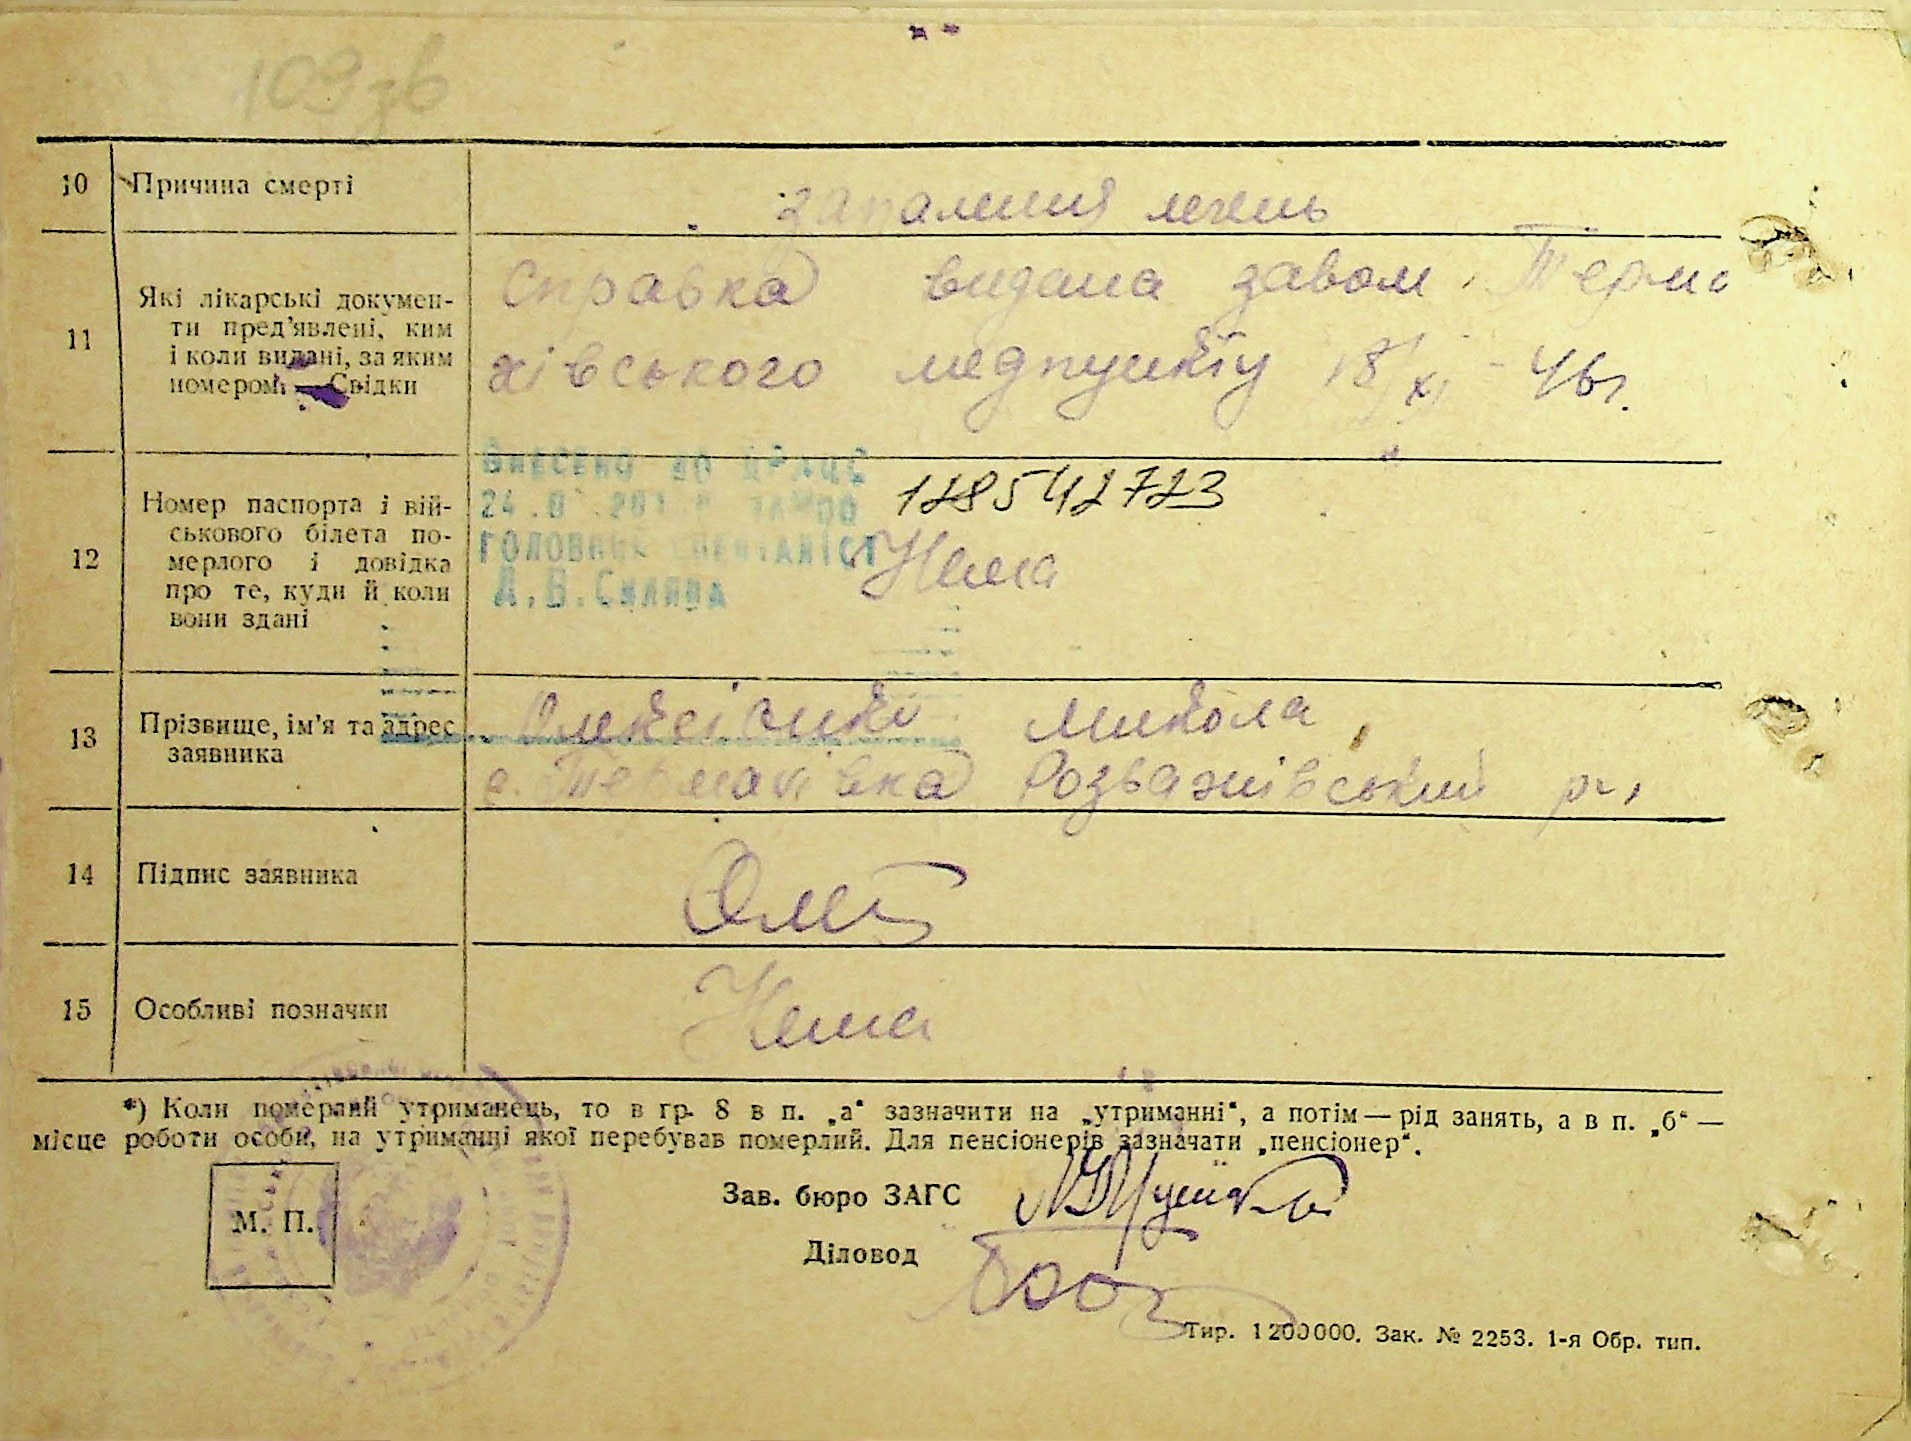 109зв
10 Причина смерті
запалення лечень
11 Які лікарські докумен-
ти пред'явлені, ким
і коли видані, за яким
номером. Свідки
Справка видана завом. Терма
хівського медпункту 18/XI - 46г.
12 Номер паспорта і вій-
ськового білета по-
мерлого і довідка
про те, куди й коли
вони здані
ВНЕСЕНО ДО
ГОЛОВНИЙ СПЕЦІАЛІСТ
128542723
Нема
13 Прізвище, ім'я та адрес
заявника
Микола,
с. Термахівка Розважівський р-н,
14 Підпис заявника
15 Особливі позначки
Нема
*) Коли померлий утриманець, то в гр. 8 в п. „а“ зазначити на „утриманні“, а потім — рід занять, а в п. „б“ —
місце роботи особи, на утриманні якої перебував померлий. Для пенсіонерів зазначати „пенсіонер“.
М. П.
Зав. бюро ЗАГС
Діловод
Тир. 1200000. Зак. № 2253. 1-я Обр. тип.